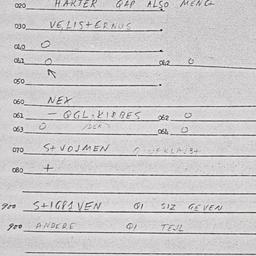 020 HARTER GAP ALSO MENG
030 VELISTERNUS
040 O
041 O 042 O
050
060 NEX
061 - QGL.KIRBES 062 O
063 O 064 O
070 S+VOJMEN
080 +
900 S+IGBIVEN QI SIZ GEVEN
900 ANDERE QI TEIL